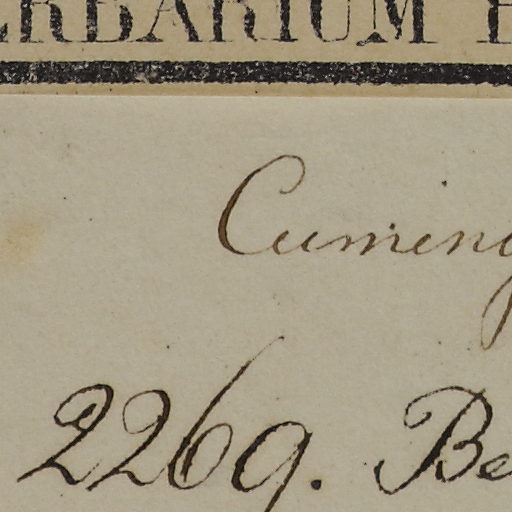 ERBARIUM
Cuming
2269. Be